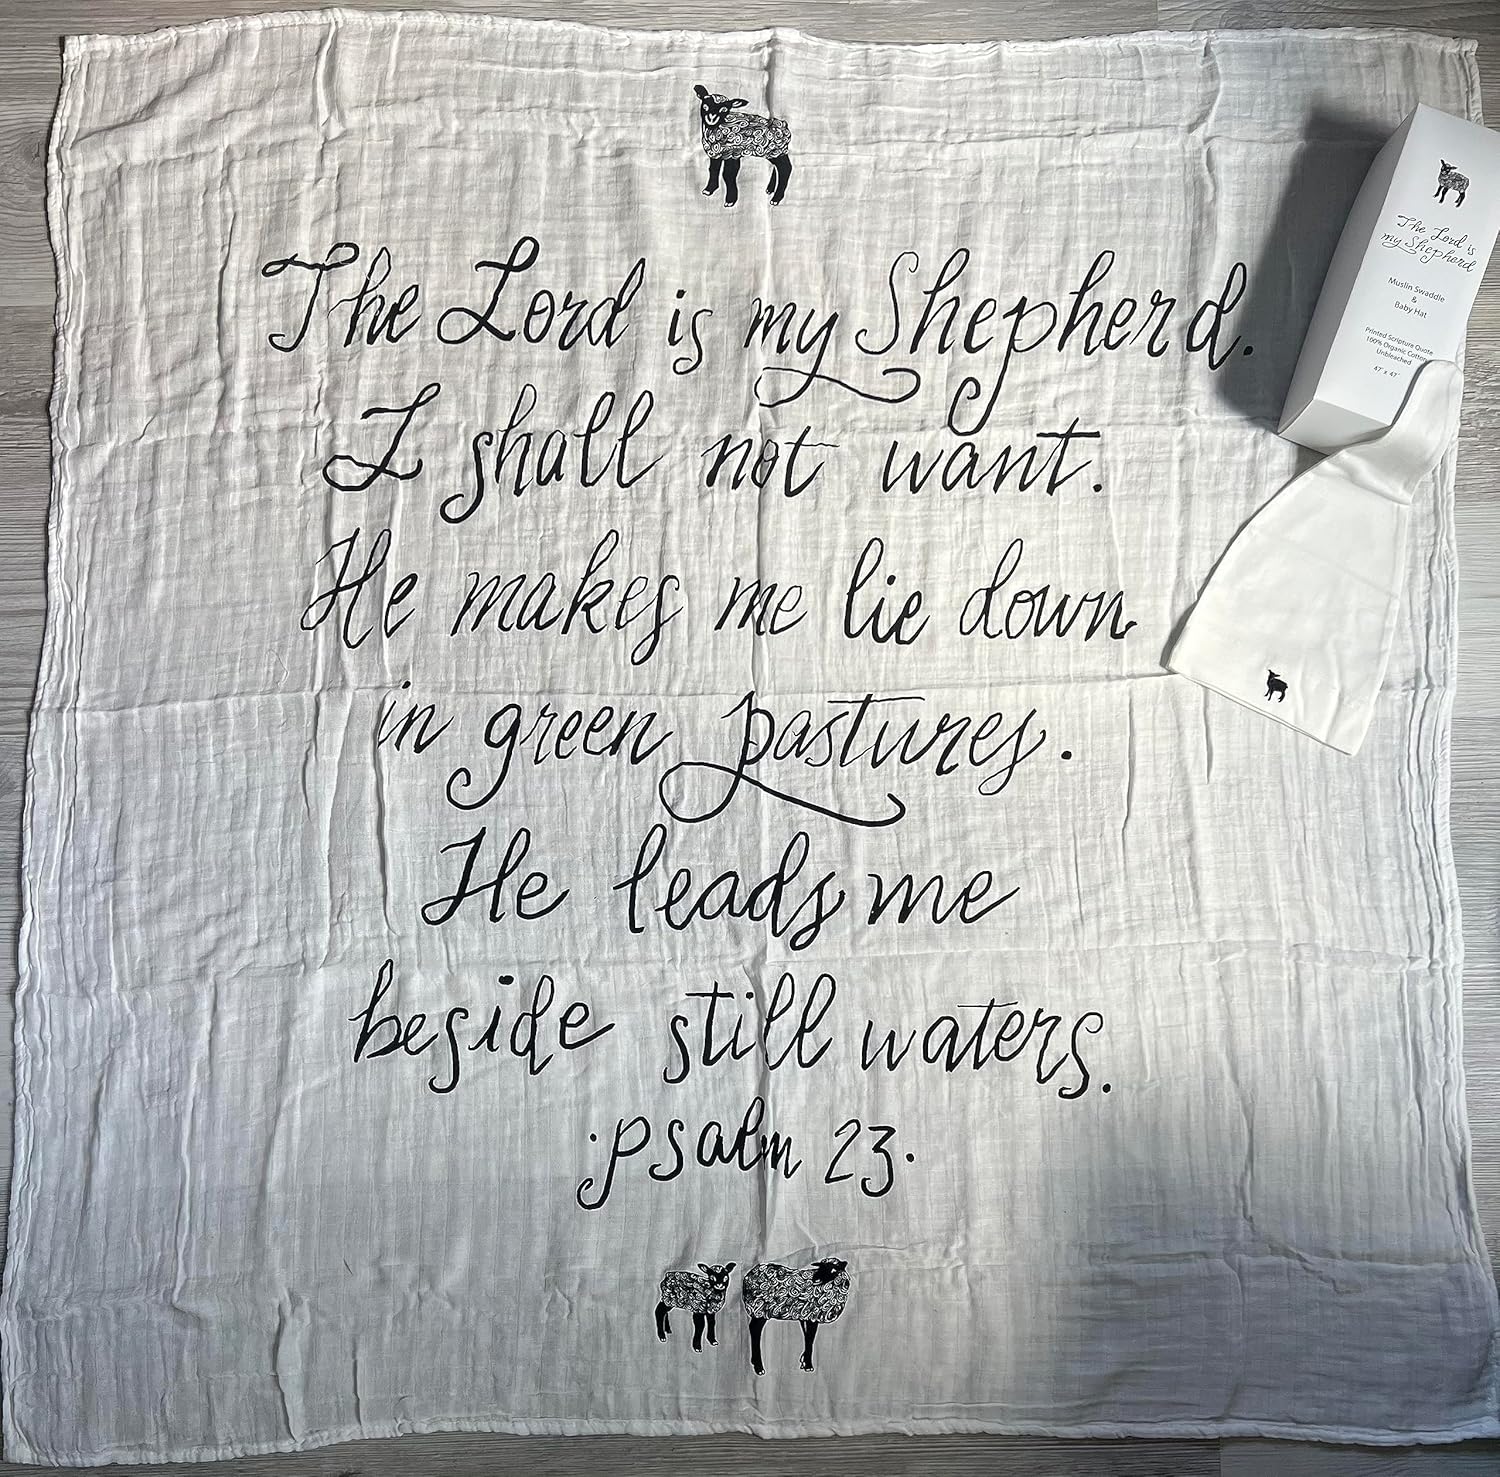 The Lord is my Shepherd.
I shall not want.
He makes me lie down
in green pastures.
He leads me
beside still waters.
·psalm 23·
The Lord is
my Shepherd
Muslin Swaddle
&
Baby Hat
Printed Scripture Quote
100% Organic Cotton
Unbleached
47" x 47"